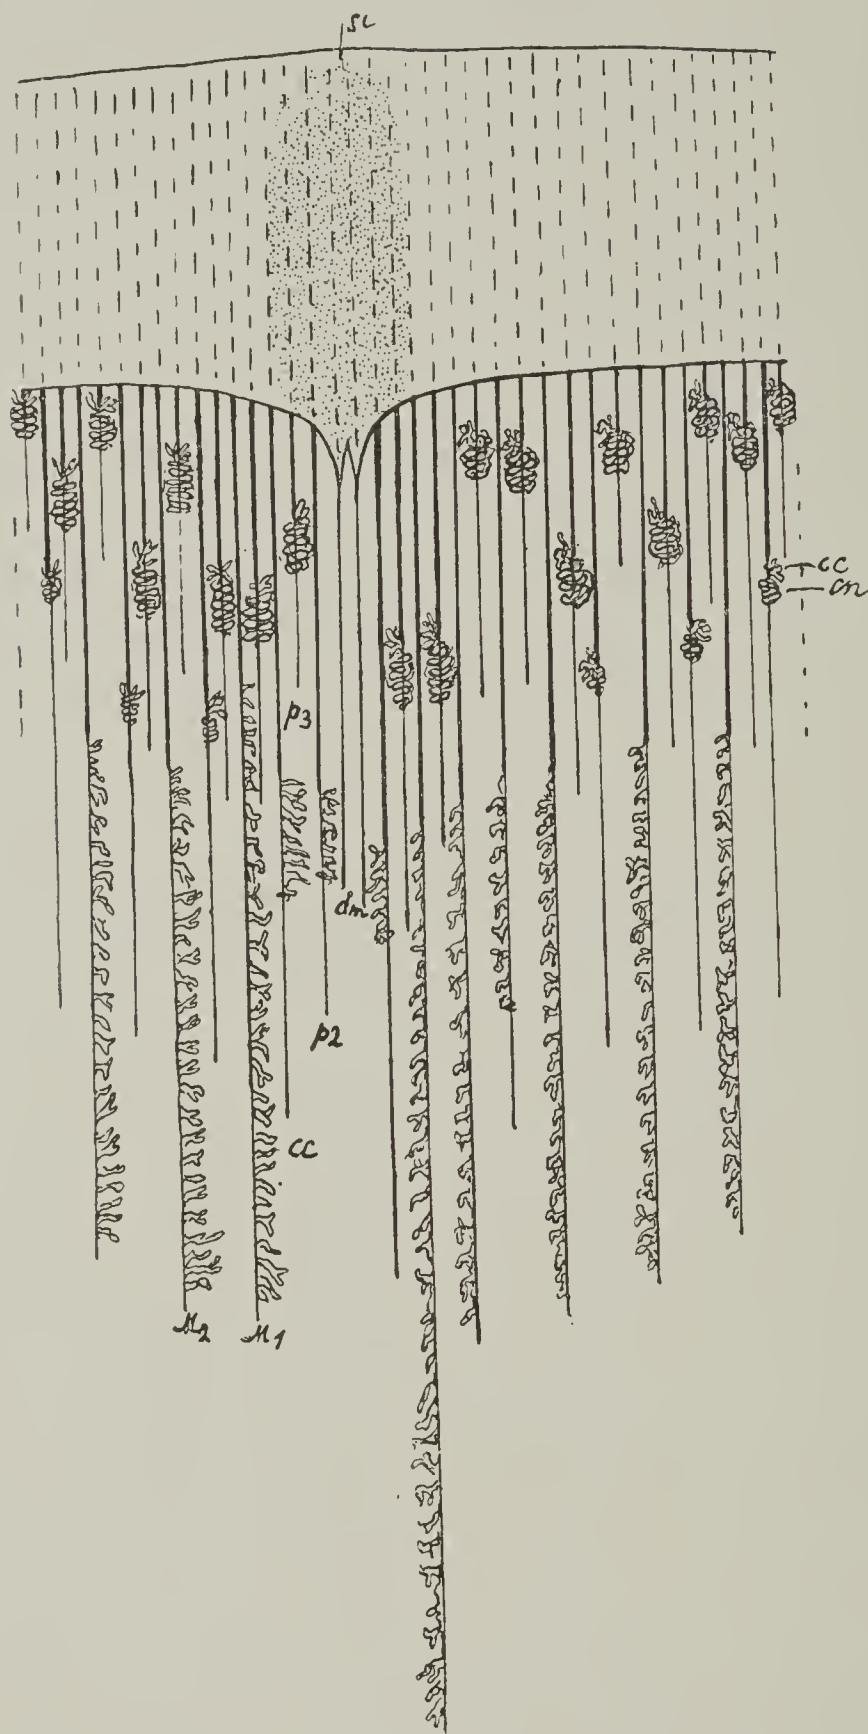 SC
cc
cn
p3
dm
p2
cc
M2
M1